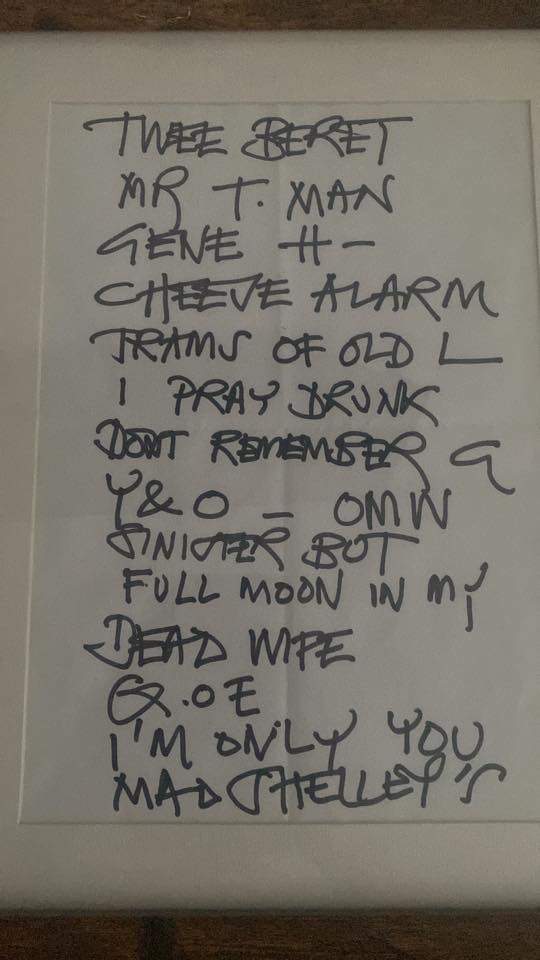 TWEE BERET
MR T. MAN
GENE H -
CHEEVE ALARM
TRAMS OF OLD L
I PRAY DRUNK
DONT REMEMBER G
Y & O - OMW
SINISTER BUT
FULL MOON IN MY
DEAD WIFE
Q.OE
I'M ONLY YOU
MAD SHELLEY'S